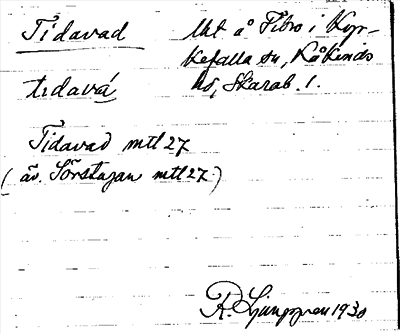 Tidavad Ut å Fibro i Kyr-
kefalla sn, Kåkinds
tıdavá hd, Skarab. l.
Tidavad mtl 27
(äv. Sörstugan mtl 27)
R. Ljunggren 1930